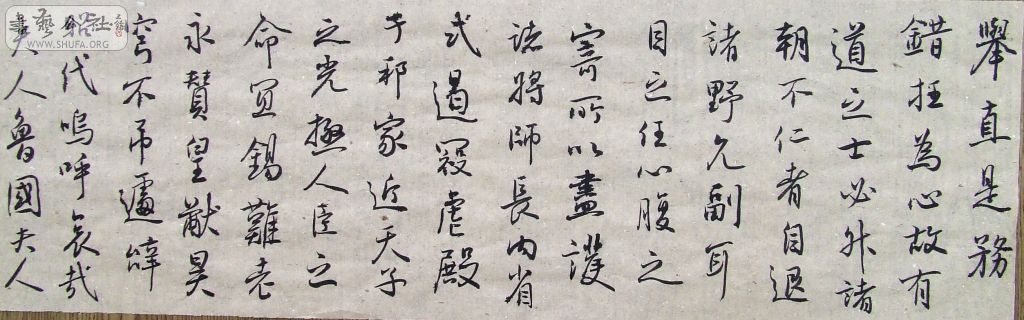 舉直是務
錯枉為心故有
道之士必升諸
朝不仁者自退
諸野允副耳
目之任心腹之
寄所以盡護
諸將師長內省
式遏寇虐殿
于邦家近天子
之光極人臣之
命宜錫難老
永贊皇猷昊
穹不弔遽辭
代嗚呼哀哉
人魯國夫人
書艺 社
WWW.SHUFA.ORG